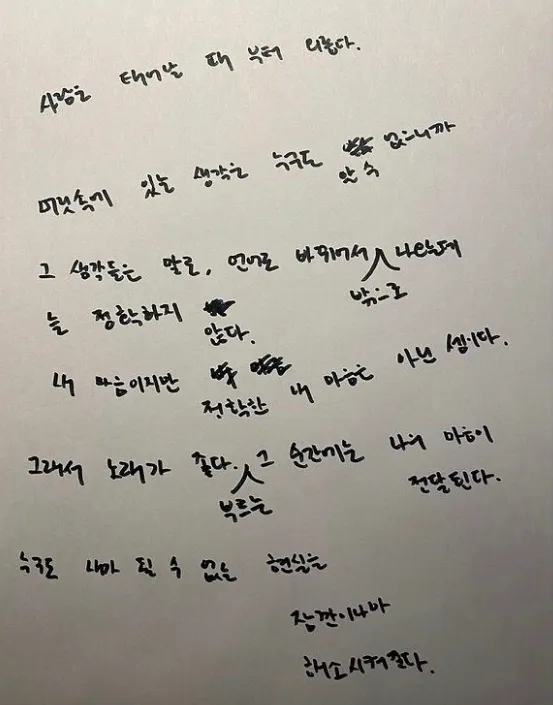 사람은 태어날 때 부터 외롭다.
머릿속에 있는 생각은 누구도 알 수 없으니까
그 생각들은 말로, 언어로 바뀌어서 밖으로 나오는데
늘 정확하지 않다.
내 마음이지만 정확한 내 마음은 아닌 셈이다.
그래서 노래가 좋다. 부르는 그 순간에는 나의 마음이
전달된다.
누구도 내가 될 수 없는 현실을
잠깐이나마
해소시켜준다.